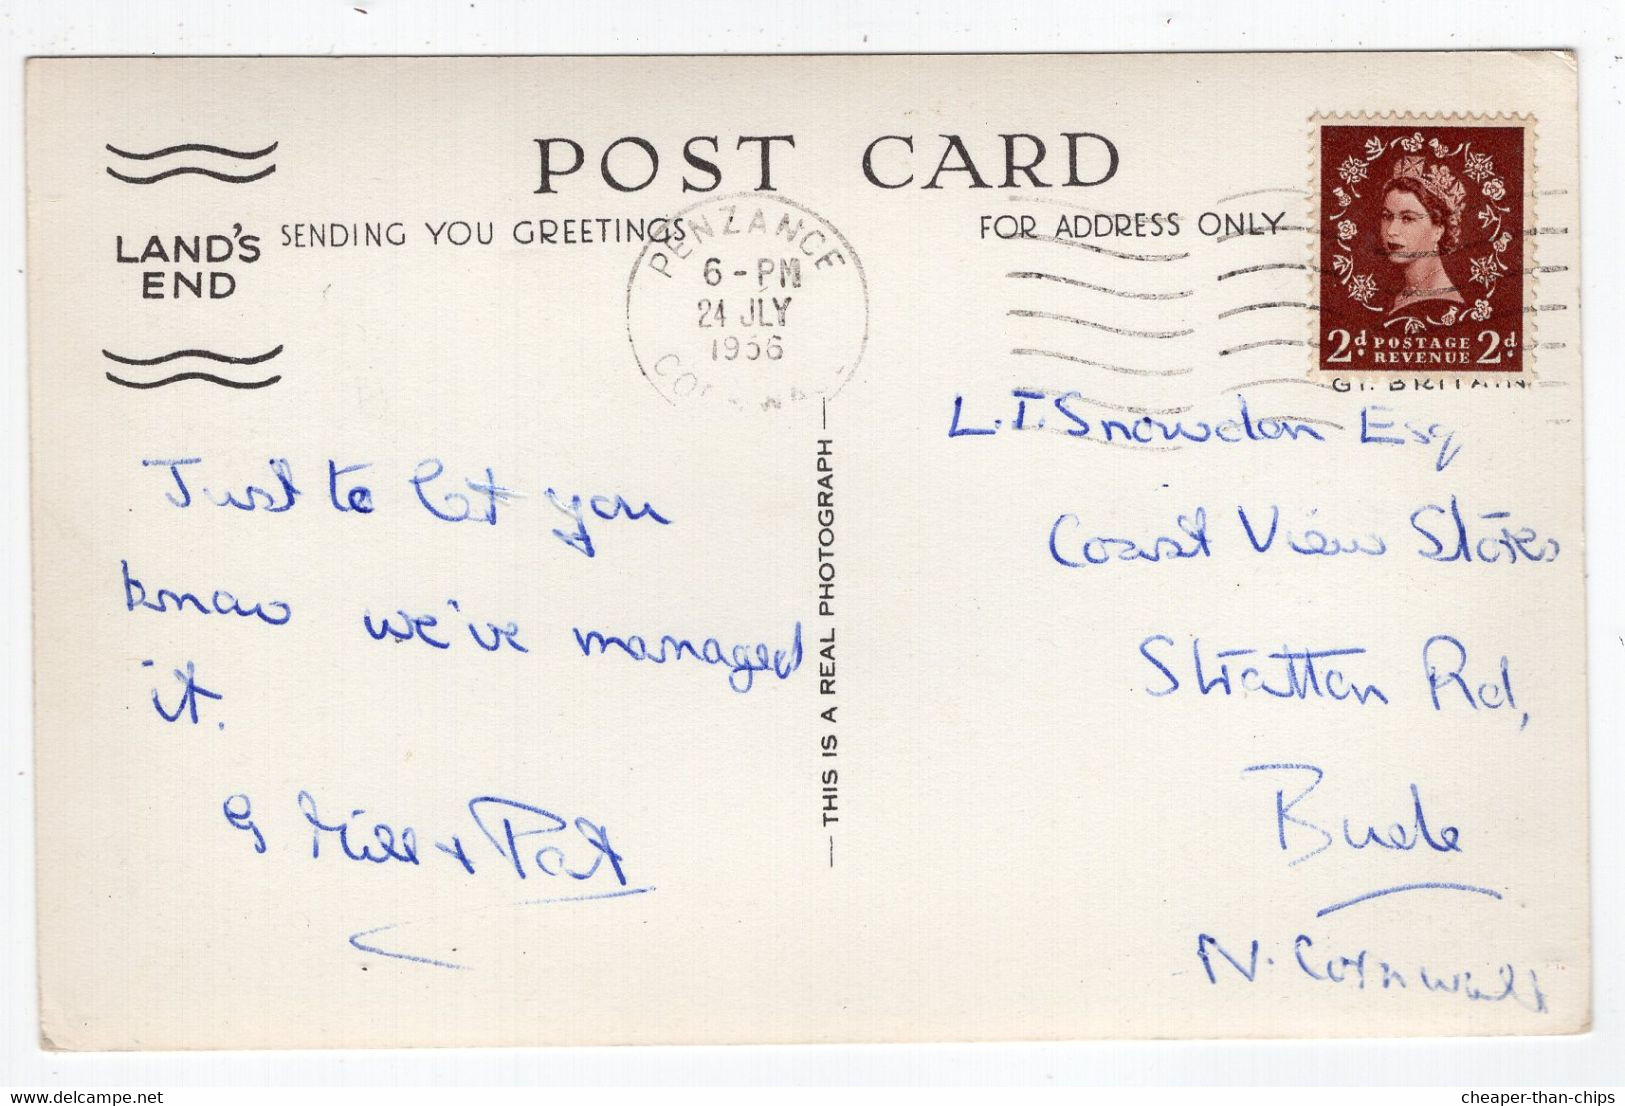 POST CARD
LAND'S
END
SENDING YOU GREETINGS
FOR ADDRESS ONLY
PENZANCE
6-PM
24 JLY
1956
2d POSTAGE 2d
REVENUE
GT. BRITAIN
Just to let you
know we've managed
it.
G Mill + Pat
THIS IS A REAL PHOTOGRAPH
L.T. Snowdon Esq
Coast View Stores
Stratton Rd,
Bude
N. Cornwall
delcampe.net
cheaper-than-chips